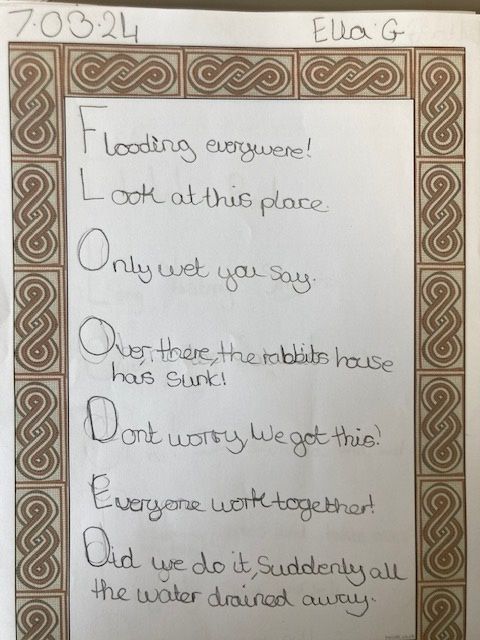 7.03.24 Ella G
Flooding everywere!
Look at this place.
Only wet you say.
Over, there, the rabbits house
has sunk!
Dont worry, We got this!
Everyone work together!
Did we do it, Suddenly all
the water drained away.